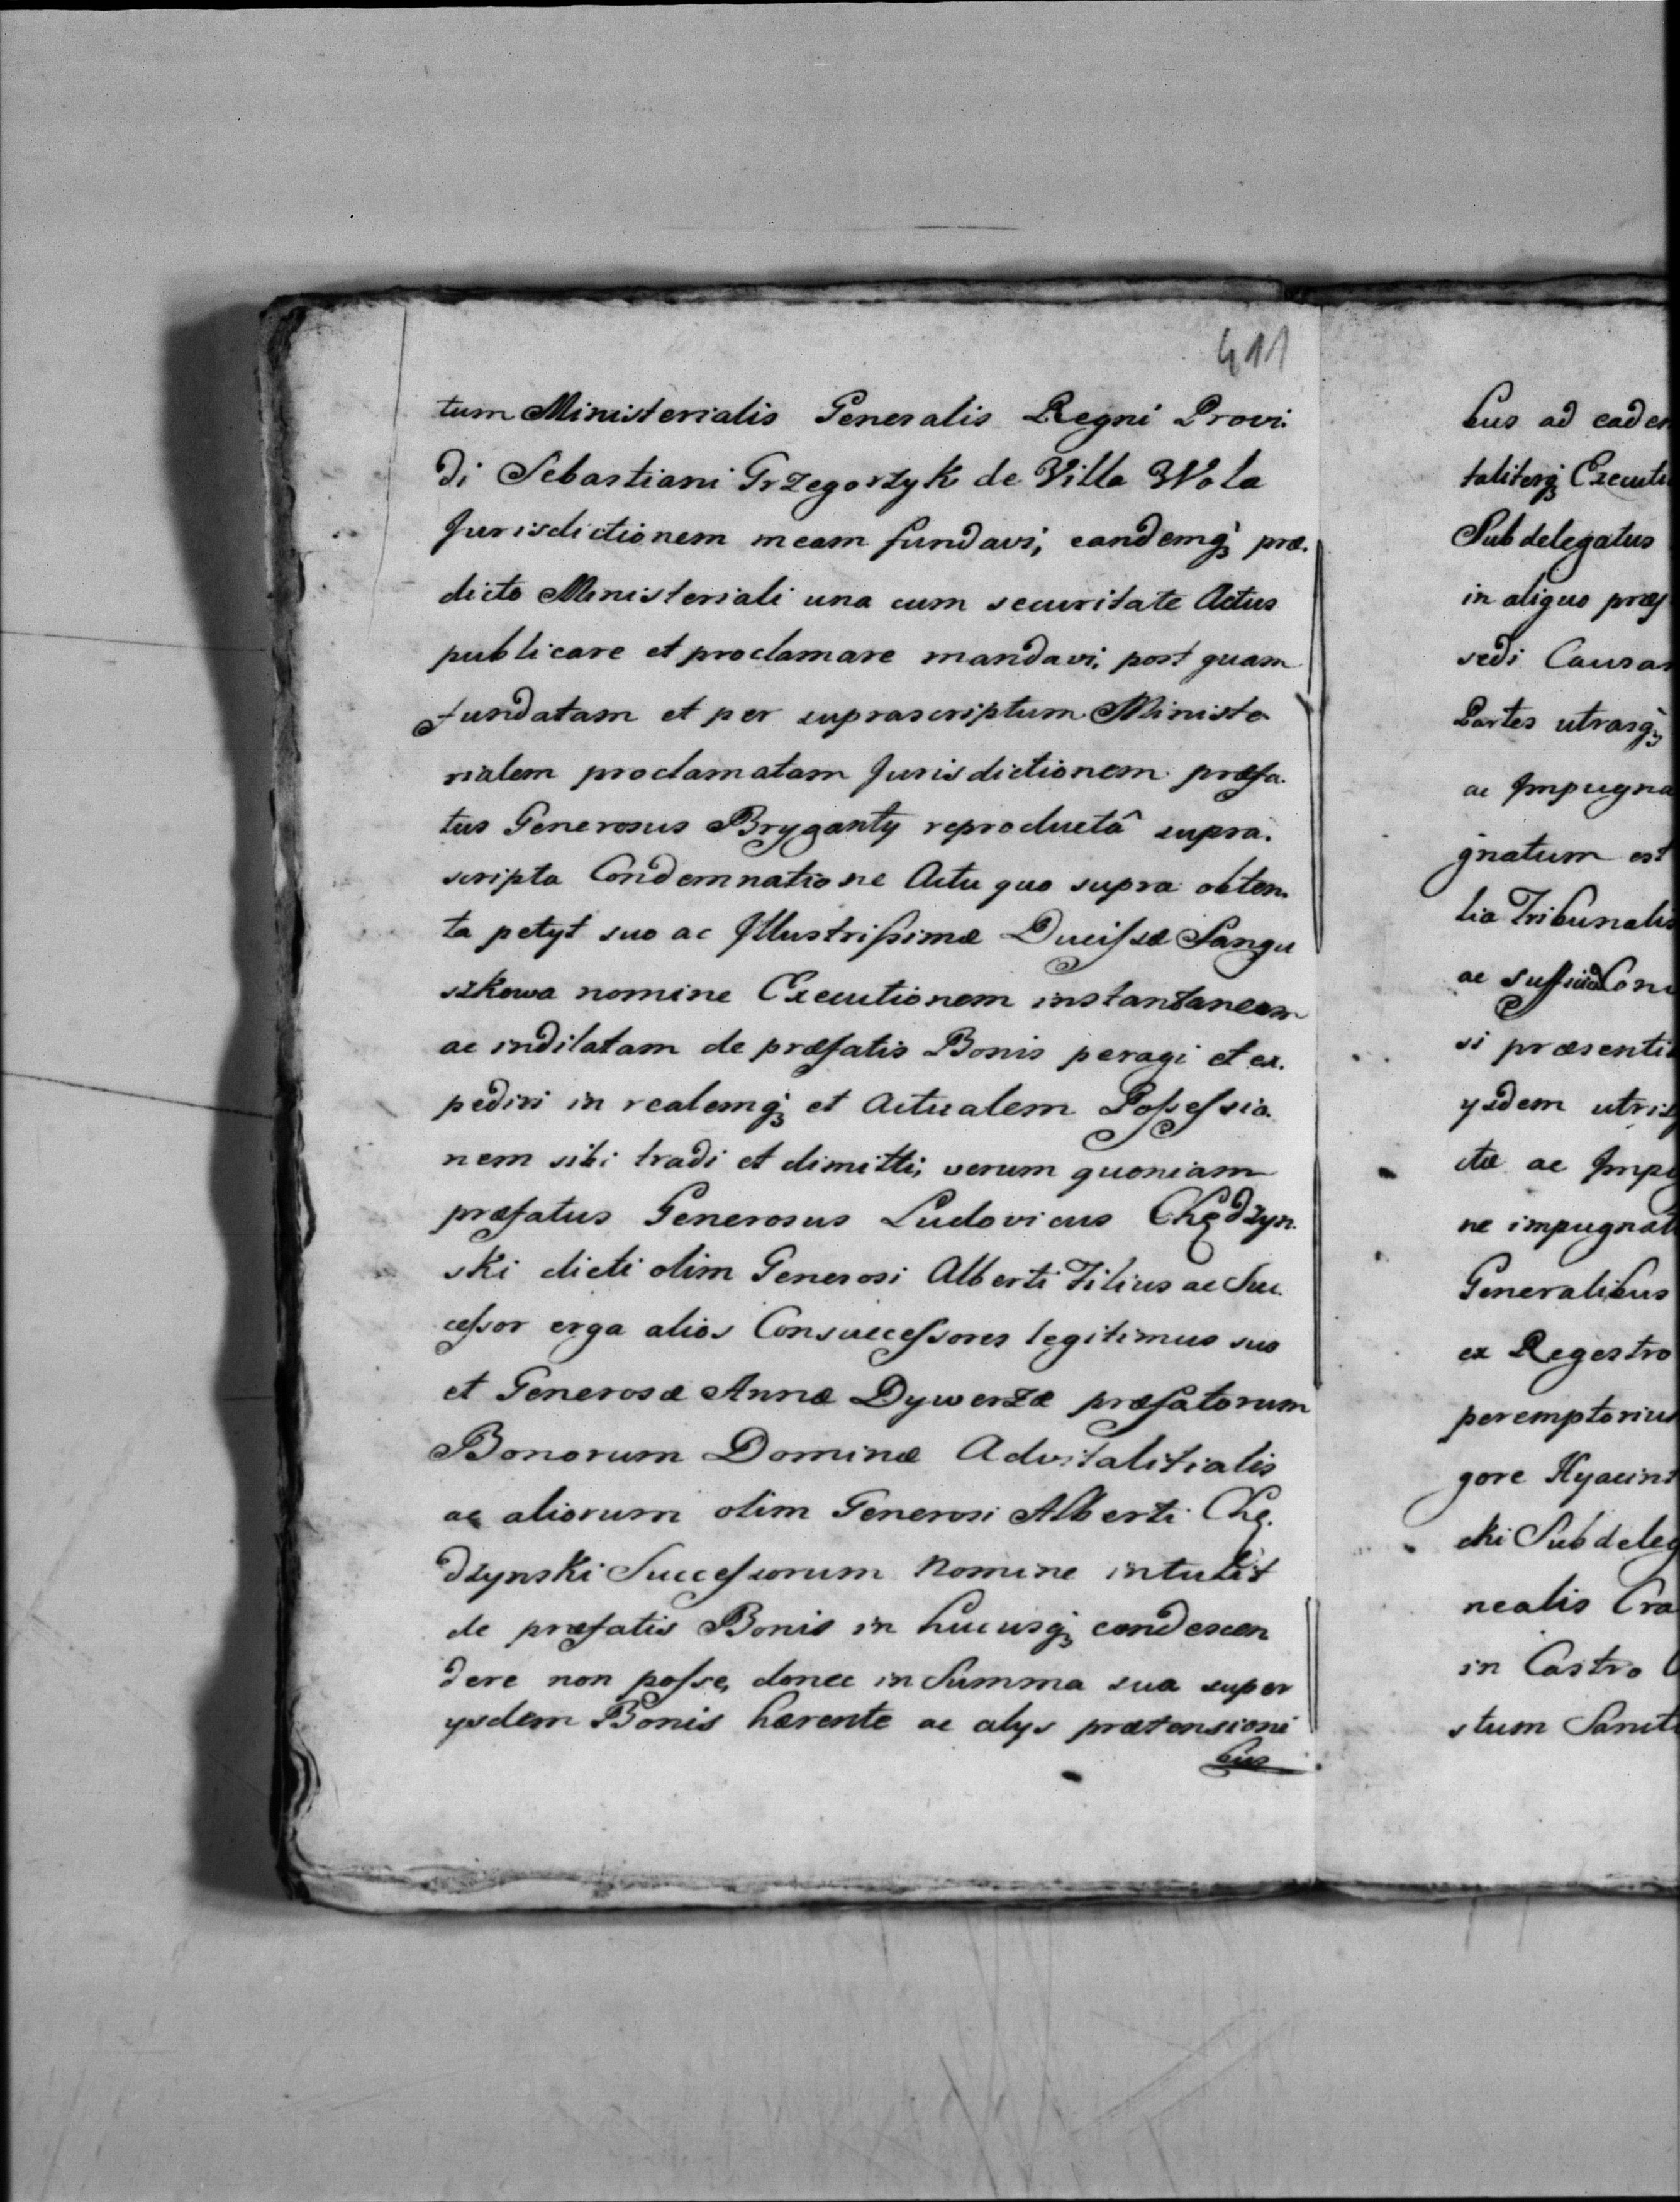 411
tum Ministerialis Generalis Regni Provi.
di Sebastiani Grzegorzyk de Villa Wola
Jurisdictionem meam fundavi, eandemq́ præ.
dicto Ministeriali una cum securitate Actus
publicare et proclamare mandavi, post quam
fundatam et per suprascriptum Ministe
rialem proclamatam Jurisdictionem præfa.
tus Generosus Bryganty reproductâ supra.
scripta Condemnatione Actu quo supra obten.
ta petyt suo ac Illustrissimæ Ducissæ Sangu
szkowa nomine Executionem instantaneam
ac indilatam de præfatis Bonis peragi et ex.
pediri in realemq́ et Actualem Possessio.
nem sibi tradi et dimitti, verum quoniam
præfatus Generosus Ludovicus Chędzyn.
ski dicti olim Generosi Alberti Filius ac Suc.
cessor erga alios Consuccessores legitimus suo
et Generosæ Annæ Dywerzæ præfatorum
Bonorum Dominæ Advitalitialis
ac aliorum olim Generosi Alberti Chę.
dzynski Successorum Nomine intulit
de præfatis Bonis in hucusq́ condescen
dere non posse, donec in Summa sua super
ysdem Bonis hærente ac alys prætensioni
bus
bus ad eadem
taliterq́ Executi
Subdelegatus
in aliquo præj
sedi Causam
Partes utrasq́
ac Impugna
gnatum est
lia Tribunalis
ac Con
si præsenti
ysdem utris
ctæ ac Impu
ne impugnat
Generalibus
ex Regestro
peremptorius
gore Hyacint
cki Subdeleg
nealis Cra
in Castro
stum Sancti